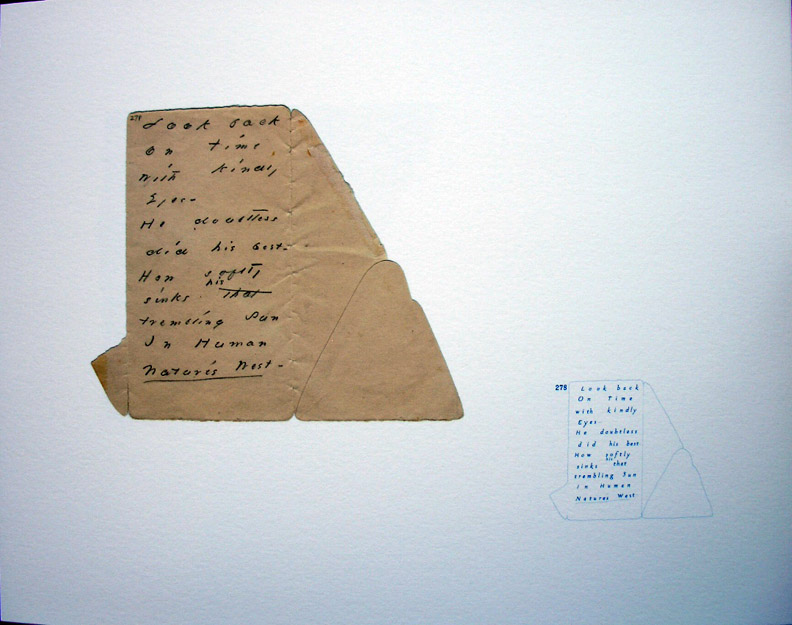 278
Look back
On Time
With kindly
Eyes -
He doubtless
did his best -
How softly
his
sinks that
trembling Sun
In Human
Nature's West -
278
Look back
On Time
with kindly
Eyes
He doubtless
did his best
How softly
his
sinks that
trembling Sun
in Human
Natures West